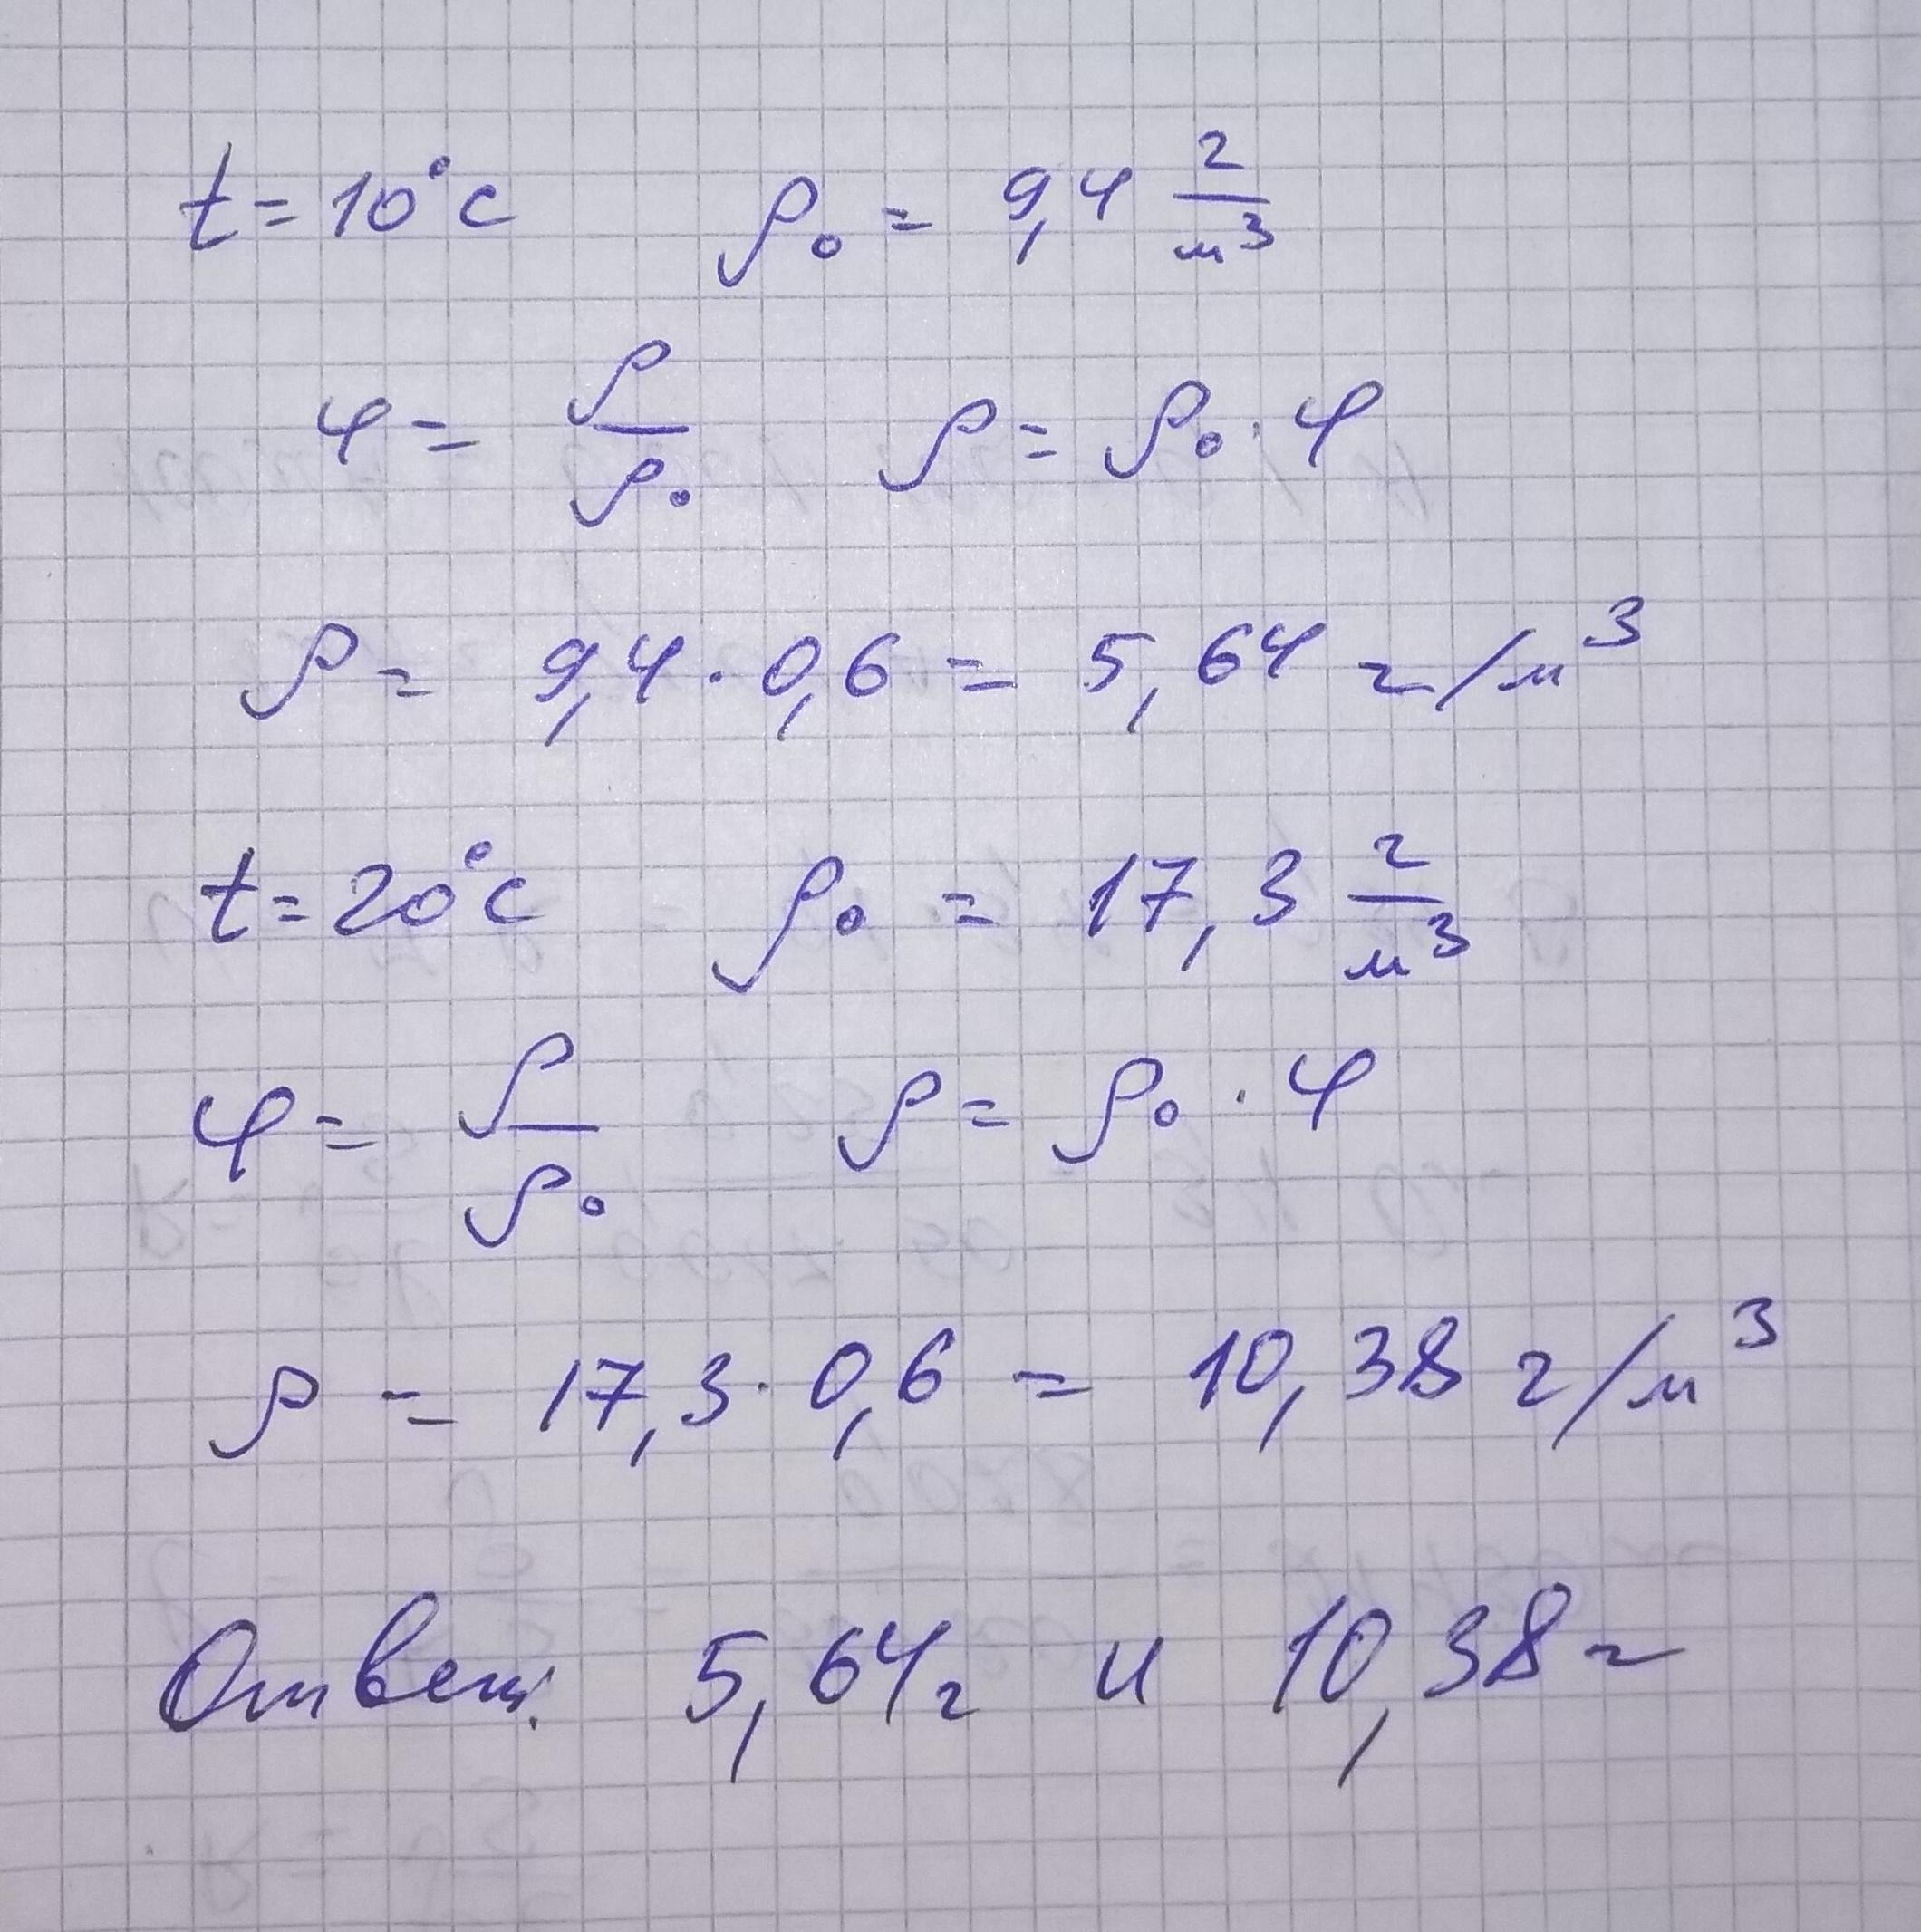 t = 10°c ρ₀ = 9,4 г/м³
φ = ρ/ρ₀ ρ = ρ₀ · φ
ρ = 9,4 · 0,6 = 5,64 г/м³
t = 20°c ρ₀ = 17,3 г/м³
φ = ρ/ρ₀ ρ = ρ₀ · φ
ρ = 17,3 · 0,6 = 10,38 г/м³
Ответ: 5,64г и 10,38г